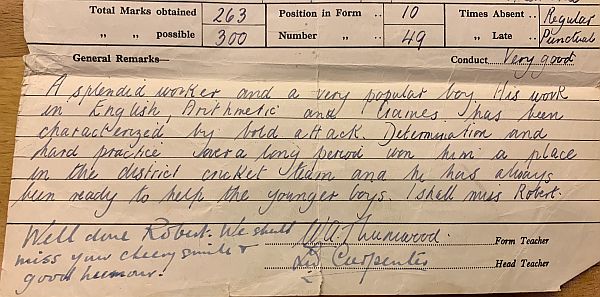 Total Marks obtained 263 Position in Form .. 10 Times Absent .. Regular
„ „ possible 300 Number „ 49 „ Late .. Punctual
General Remarks— Conduct Very good
A splendid worker and a very popular boy. His work
in English, Arithmetic and Games, has been
characterized by bold attack. Determination and
hard practice over a long period won him a place
in the district cricket team and he has always
been ready to help the younger boys. I shall miss Robert.
Well done Robert. We shall
miss your cheery smile &
good humour!
Form Teacher
Carpenter Head Teacher